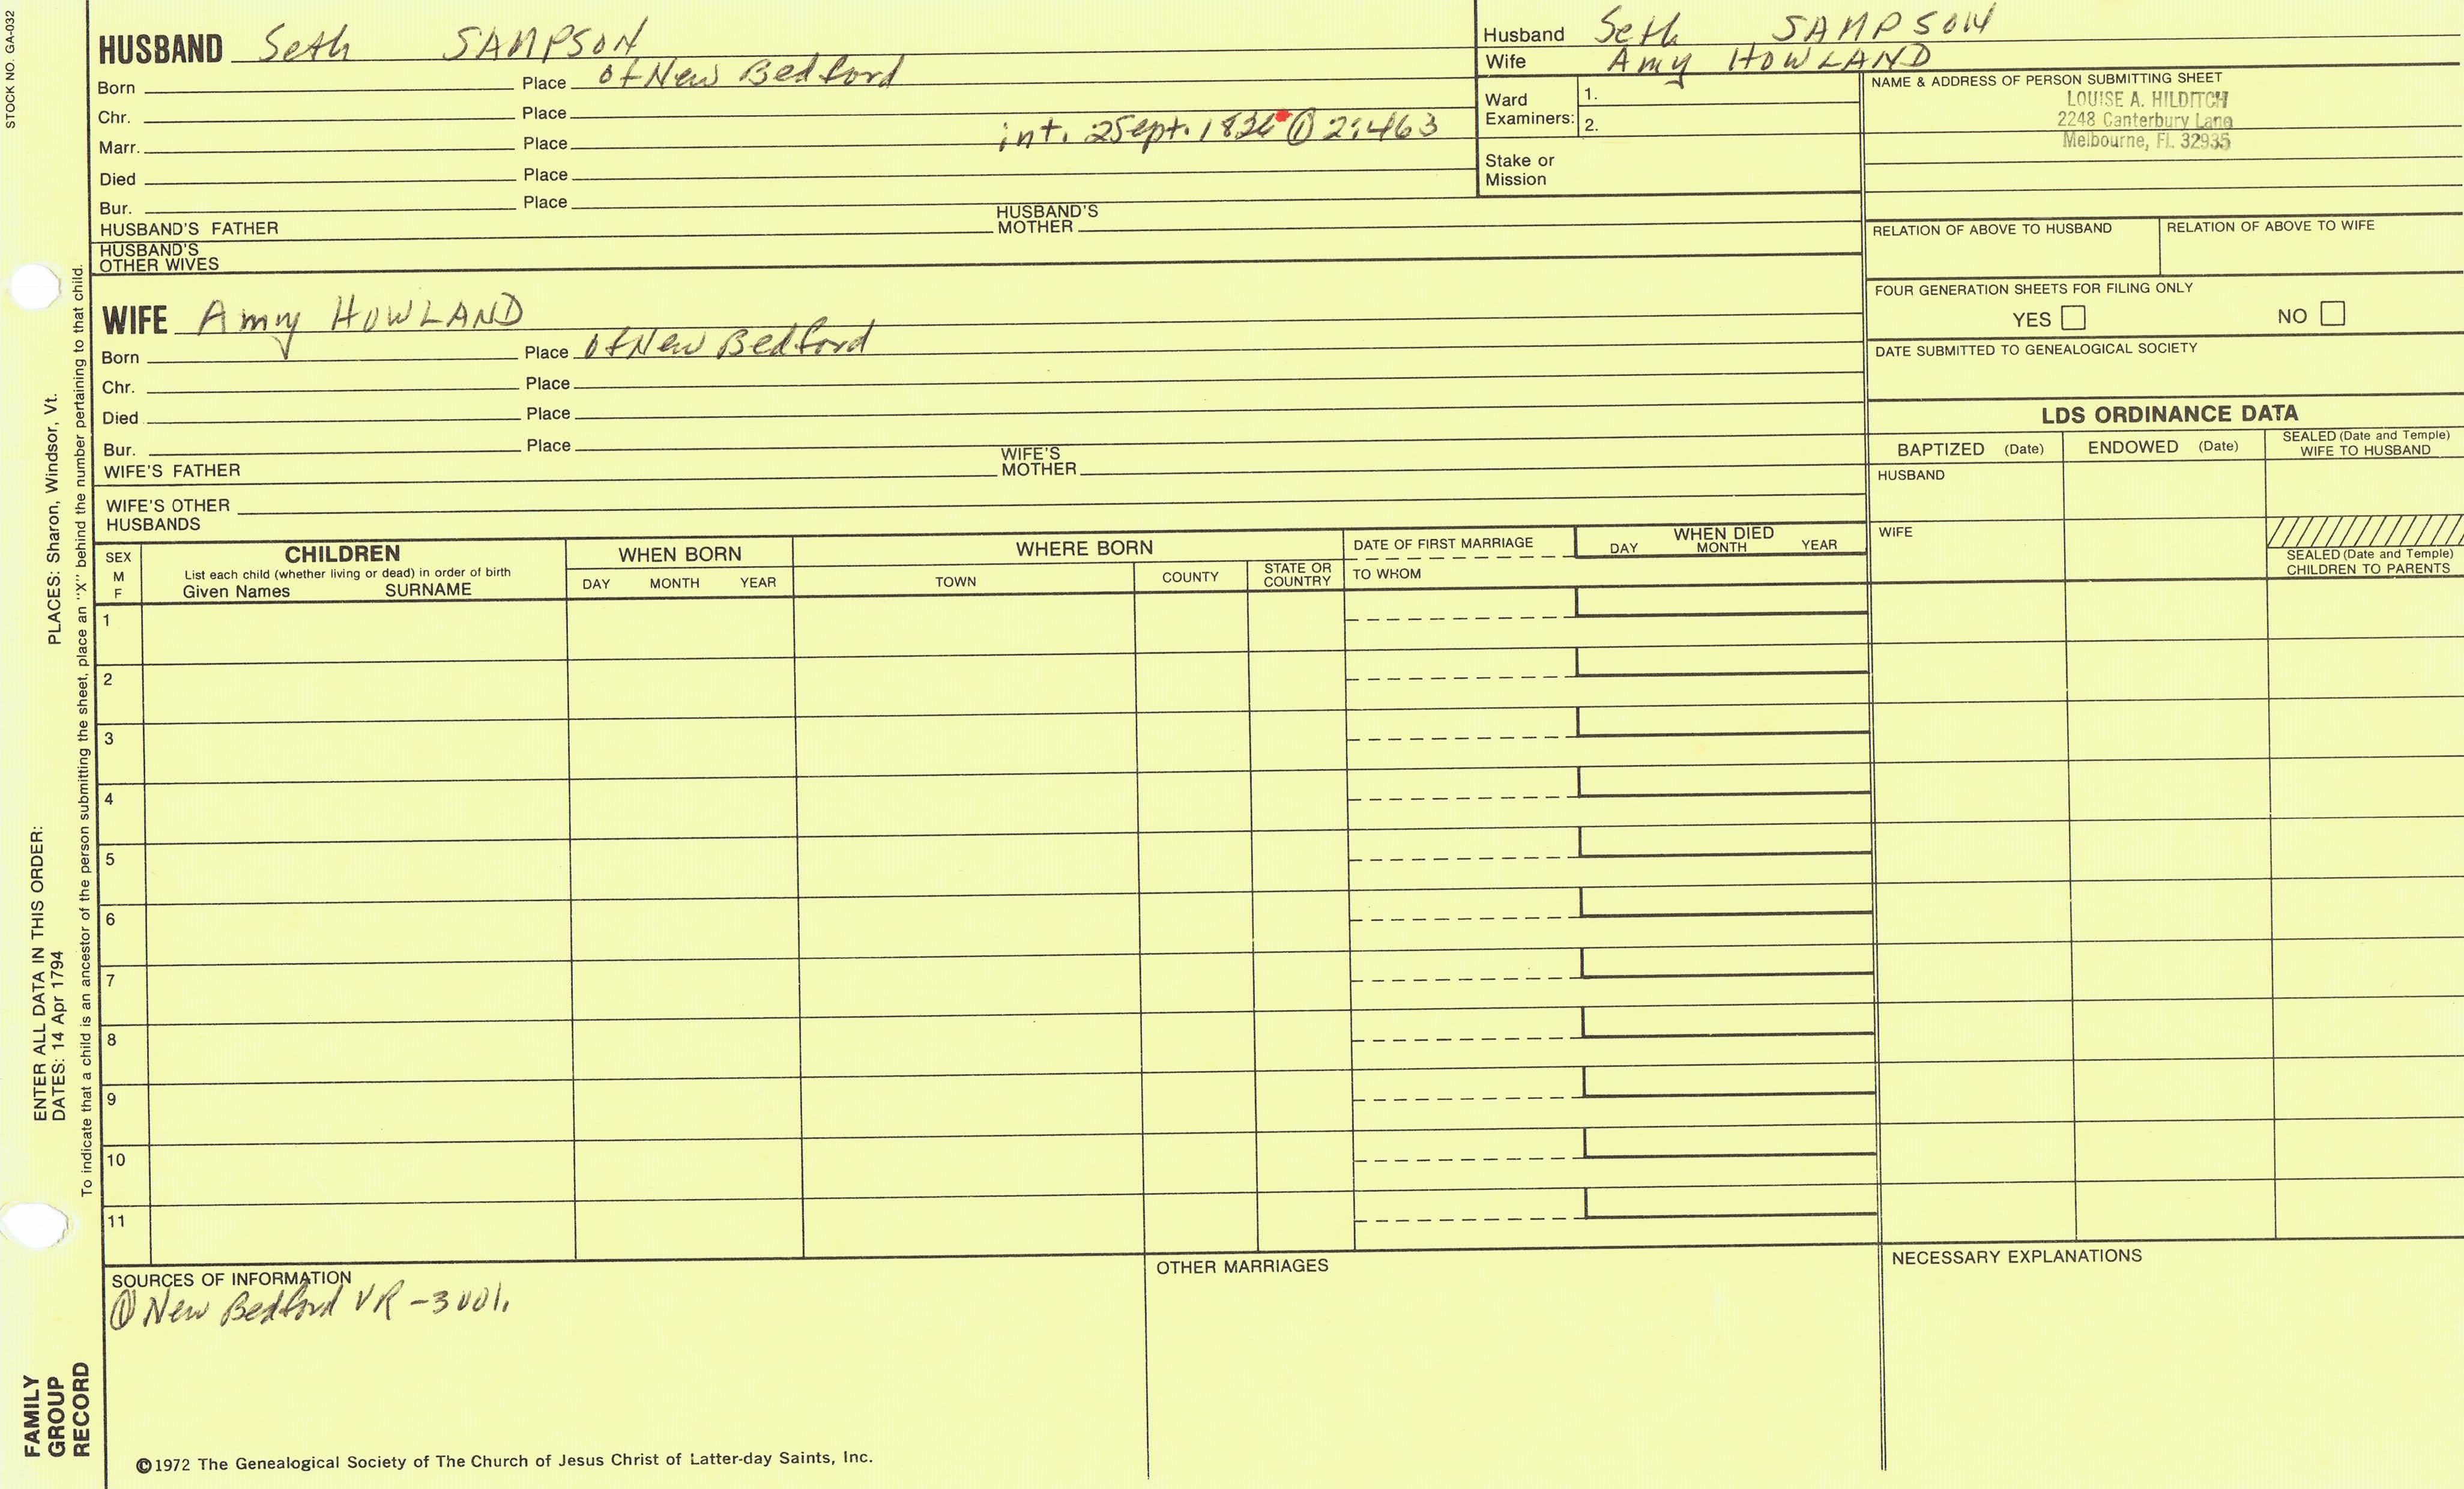 STOCK NO. GA-032
HUSBAND Seth SAMPSON
Born Place of New Bedford
Chr. Place
Marr. Place int. 2 Sept. 1836 ① 2:463
Died Place
Bur. Place
HUSBAND'S FATHER HUSBAND'S MOTHER
HUSBAND'S OTHER WIVES
Husband Seth SAMPSON
Wife Amy HOWLAND
Ward Examiners: 1.
2.
Stake or Mission
NAME & ADDRESS OF PERSON SUBMITTING SHEET
LOUISE A. HILDITCH
2248 Canterbury Lane
Melbourne, FL 32935
RELATION OF ABOVE TO HUSBAND RELATION OF ABOVE TO WIFE
FOUR GENERATION SHEETS FOR FILING ONLY
YES NO
DATE SUBMITTED TO GENEALOGICAL SOCIETY
WIFE Amy HOWLAND
Born Place of New Bedford
Chr. Place
Died Place
Bur. Place
WIFE'S FATHER WIFE'S MOTHER
WIFE'S OTHER HUSBANDS
LDS ORDINANCE DATA
BAPTIZED (Date) ENDOWED (Date) SEALED (Date and Temple) WIFE TO HUSBAND
HUSBAND
WIFE
SEALED (Date and Temple) CHILDREN TO PARENTS
SEX M F
CHILDREN
List each child (whether living or dead) in order of birth
Given Names SURNAME
WHEN BORN
DAY MONTH YEAR
WHERE BORN
TOWN COUNTY STATE OR COUNTRY
DATE OF FIRST MARRIAGE
TO WHOM
WHEN DIED
DAY MONTH YEAR
1
2
3
4
5
6
7
8
9
10
11
SOURCES OF INFORMATION
① New Bedford VR - 3 vol.
OTHER MARRIAGES
NECESSARY EXPLANATIONS
©1972 The Genealogical Society of The Church of Jesus Christ of Latter-day Saints, Inc.
FAMILY GROUP RECORD
ENTER ALL DATA IN THIS ORDER:
DATES: 14 Apr 1794
PLACES: Sharon, Windsor, Vt.
To indicate that a child is an ancestor of the person submitting the sheet, place an "X" behind the number pertaining to that child.